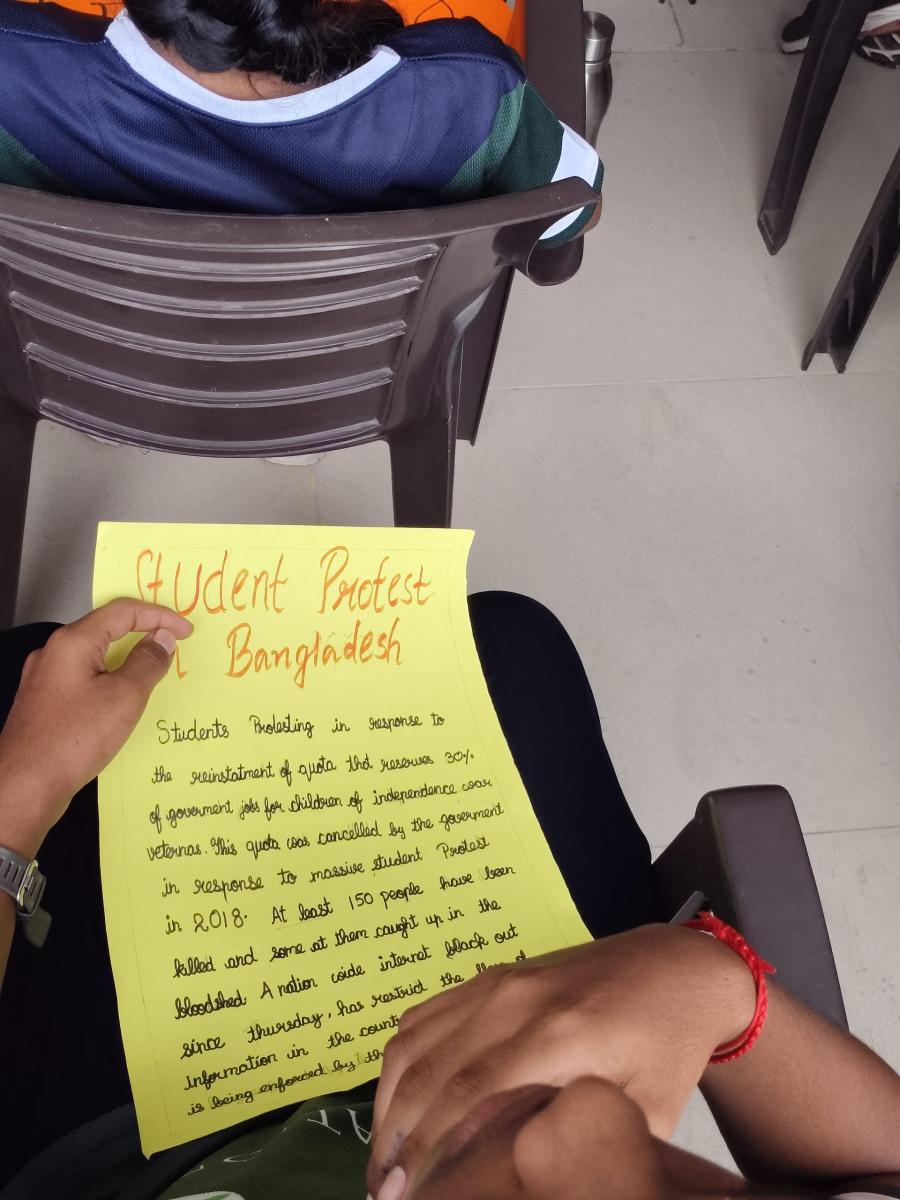 Student Protest
Bangladesh
Students Protesting in response to
the reinstatment of quota that reserves 30%
of goverment jobs for children of independence war
veternas. This quota was cancelled by the goverment
in response to massive student Protest
in 2018. At least 150 people have been
killed and some at them caught up in the
bloodshed. A nation wide internet black out
since thursday, has restrict the
information in the
is being enforced by